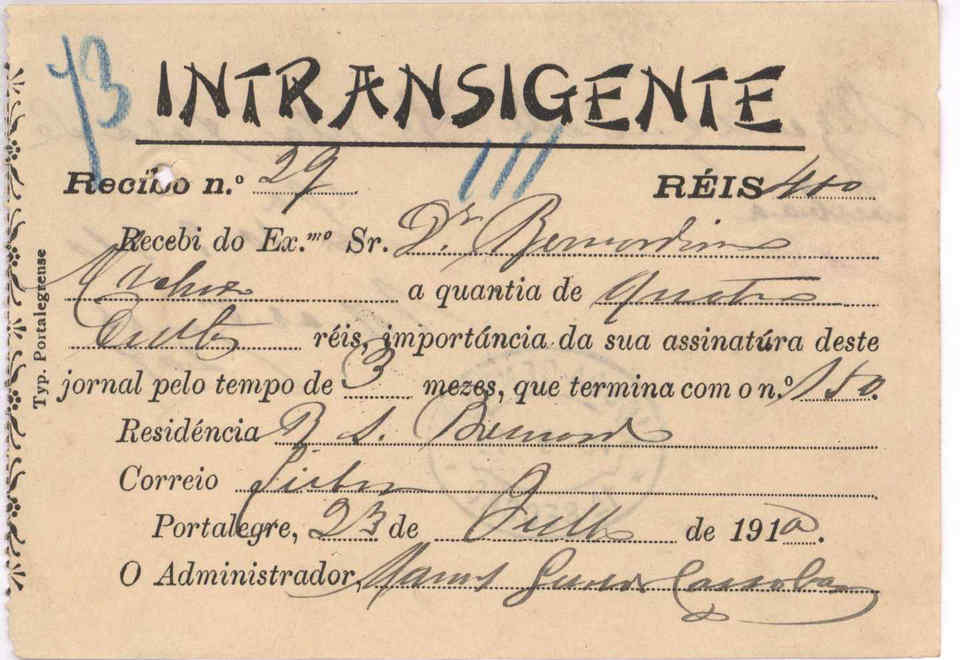 INTRANSIGENTE
73
111
Recibo n.º 29 RÉIS 400
Recebi do Ex.mo Sr. Dr Bernardino
Machado a quantia de quatro
réis, importáncia da sua assinatúra deste
jornal pelo tempo de 3 mezes, que termina com o n.º 150.
Residéncia R S. Bernardo
Correio Lisboa
Portalegre, 23 de Julho de 1910.
O Administrador,
Typ. Portalegrense